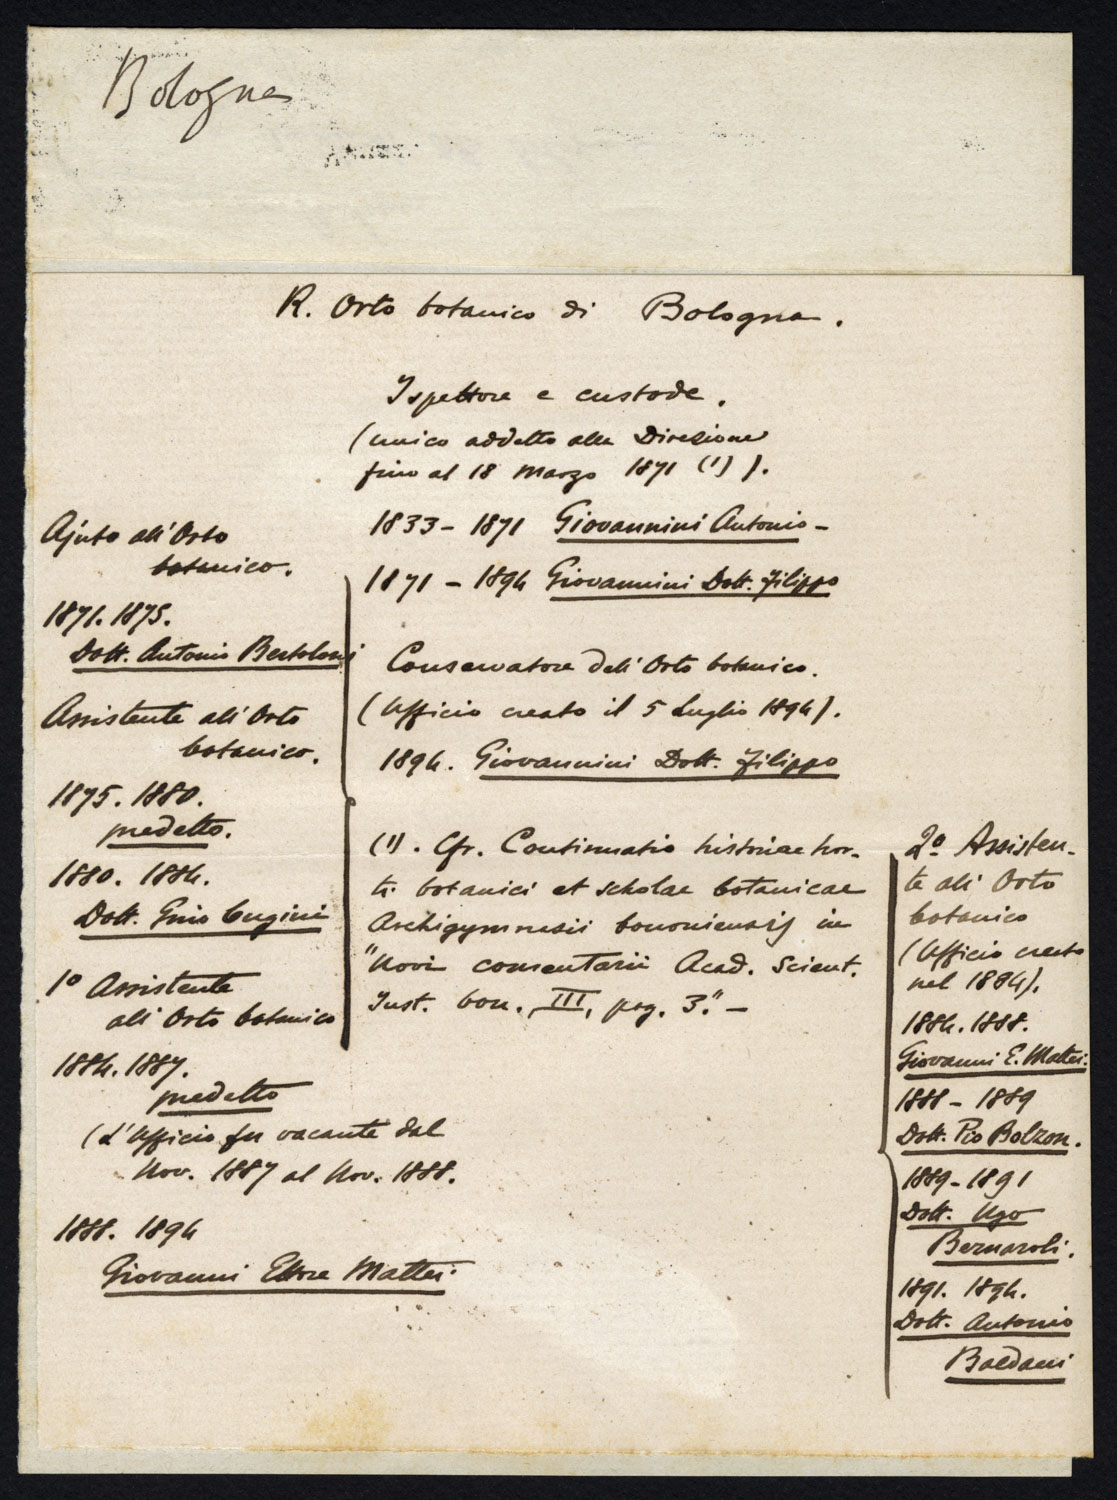 Bologna
R. Orto botanico di Bologna.
Ispettore e custode.
(unico addetto alla Direzione
fino al 18 Marzo 1871 (1) ).
1833 - 1871 Giovannini Antonio -
1871 - 1894 Giovannini Dott. Filippo
Conservatore dell'Orto botanico.
(Ufficio creato il 5 Luglio 1894).
1894. Giovannini Dott. Filippo
(1). Cfr. Continuatio historiae hor-
ti botanici et scholae botanicae
Archigymnasii bononiensis in
"Novi comentarii Acad. Scient.
Inst. bon. III, pag. 3." -
Ajuto all'Orto
botanico.
1871. 1875.
Dott. Antonio Bertoloni
Assistente all'Orto
botanico.
1875. 1880.
predetto.
1880. 1884.
Dott. Gino Cugini
1º Assistente
all'Orto botanico
1884. 1887.
predetto
(L'Ufficio fu vacante dal
Nov. 1887 al Nov. 1888.
1888. 1894
Giovanni Ettore Mattei.
2º Assisten-
te all'Orto
botanico
(Ufficio creato
nel 1884).
1884. 1888.
Giovanni E. Mattei.
1888 - 1889
Dott. Pio Bolzon.
1889 - 1891
Dott. Ugo
Bernaroli.
1891. 1894.
Dott. Antonio
Baldacci